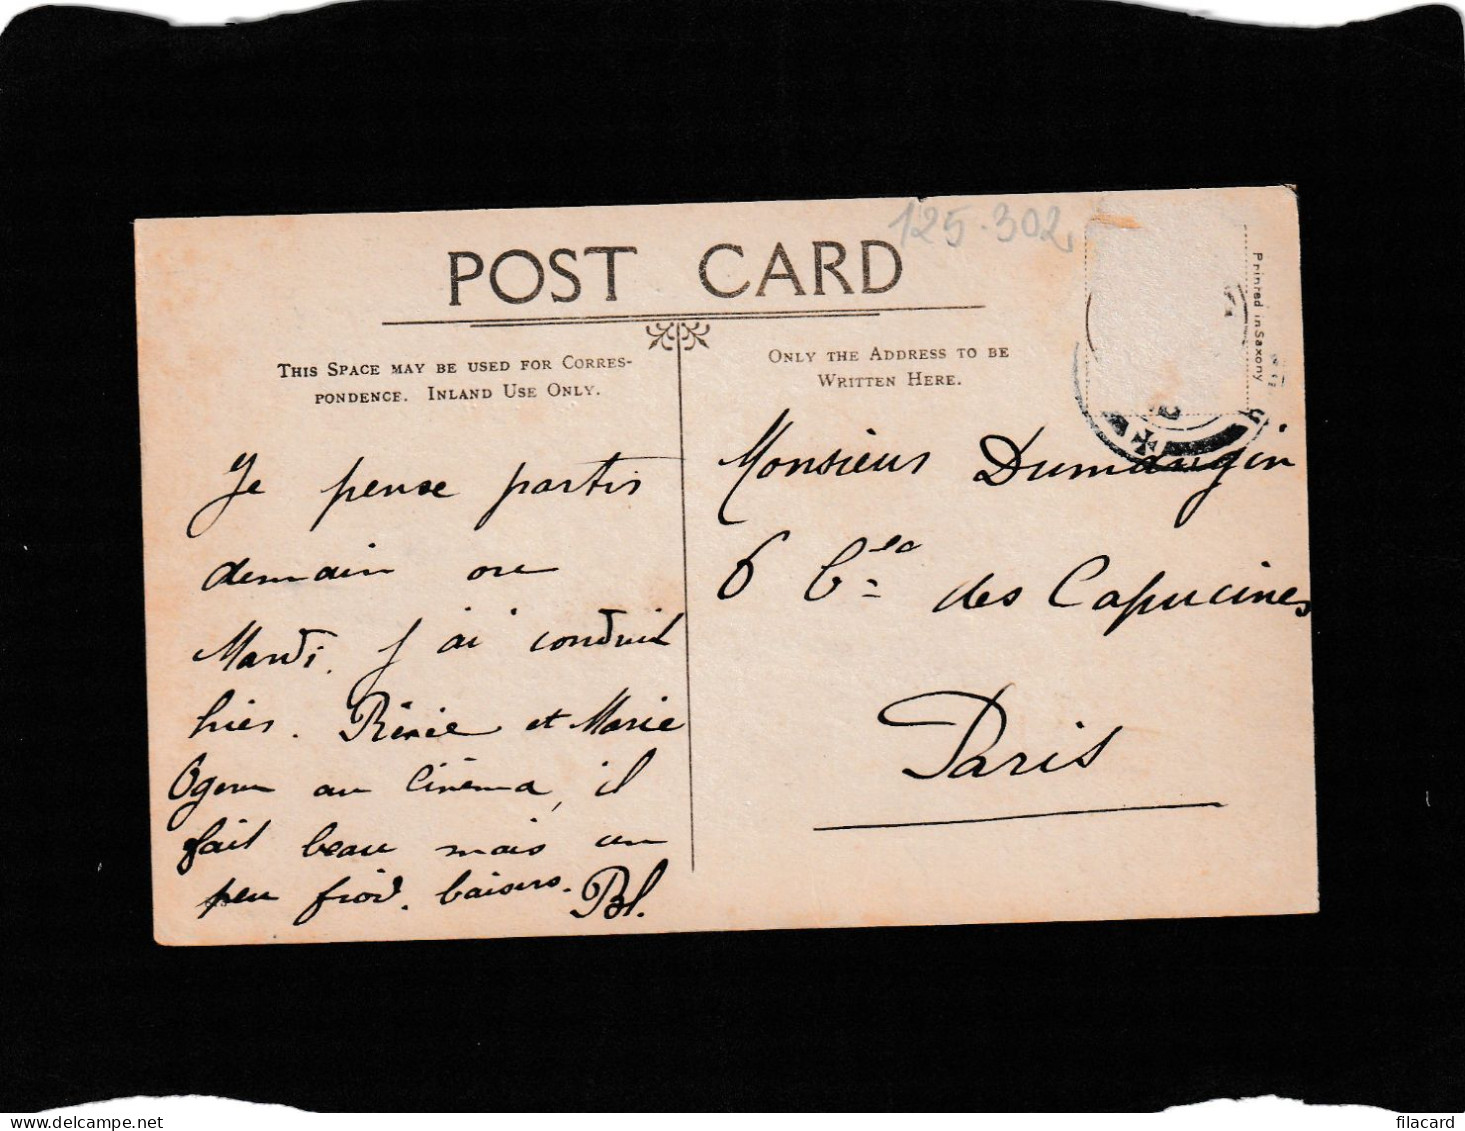 125.302
POST CARD
Printed in Saxony
THIS SPACE MAY BE USED FOR CORRES-
PONDENCE. INLAND USE ONLY.
ONLY THE ADDRESS TO BE
WRITTEN HERE.
Je pense partir
demain ou
Mardi. J'ai conduit
hier. Rénée et Marie
au Cinéma, il
fait beau mais un
peu froid. baisers. Bl.
Monsieur Dumaugin
6 des Capucines
Paris
filacard